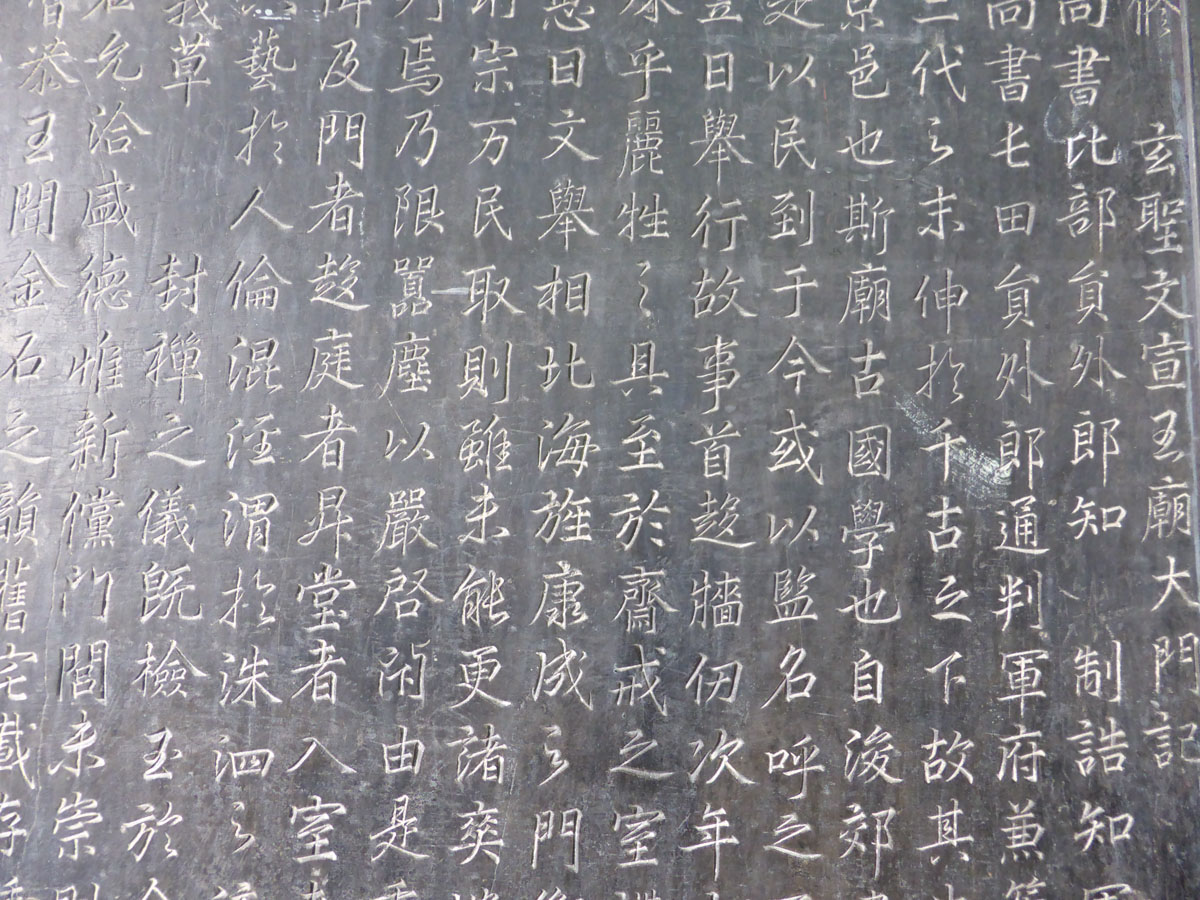 修 玄聖文宣王廟大門記
尚書比部員外郎知 制誥知
尚書屯田員外郎通判軍府兼
三代之末伸於千古之下故其
京邑也斯廟古國學也自浚郊
以民到于今或以監名呼之
豆日舉行故事首趍牆仞次年
乎麗牲之具至於齋戒之室
日文舉相北海旌康成之門
宗万民取則雖未能更諸爽
焉乃限嚻塵以嚴啓閉由是
及門者趍庭者昇堂者入室
藝於人倫混泾渭於洙泗之
我草 封禪之儀既檢玉於
允洽咸德惟新儻門閭未崇則
恭王聞金石之韻舊宅載存